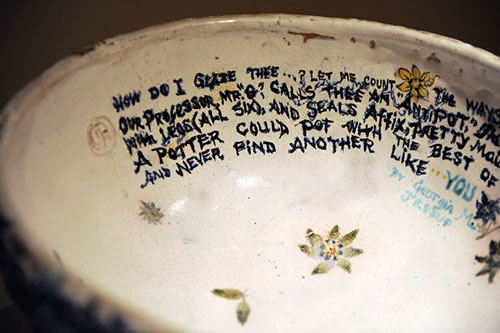 HOW DO I GLAZE THEE...? LET ME COUNT THE WAYS
OUR PROFESSOR, MR "G" CALLS THEE AN "ANTIPOT,"
WITH LEGS (ALL SIX), AND SEALS AFFIX, PRETTY
A POTTER COULD POT WITH THE BEST OF
AND NEVER FIND ANOTHER LIKE...YOU
BY GEORGIA
JESSUP